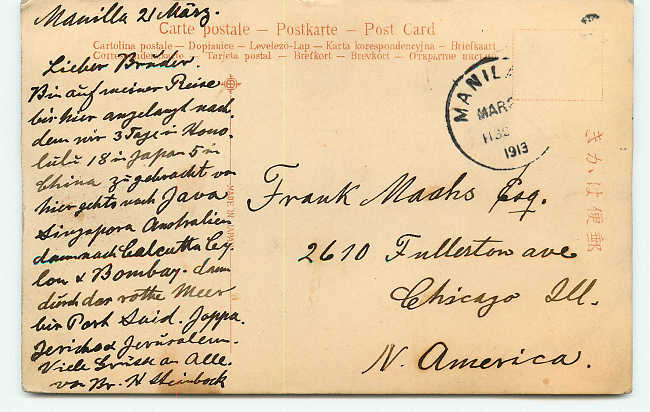 Manilla 21 März.
Carte postale – Postkarte – Post Card
Cartolina postale – Dopisnice – Levelező-Lap – Karta korespondencyjna – Briefkaart
Tarjeta postal – Brefkort – Brevkort – Открытое
Lieber Brüder.
Bin auf meiner Reise
bis hier angelangt nach
dem wir 3 Tage in Hono-
lulu 18 in Japan 5 in
China zugebracht von
hier gehts nach Java
Singapora Australien
dann nach Calcutta Cey
lon & Bombay. dann
dürch das rothe Meer
bis Port Said. Joppa.
Jericho & Jerüsalem.
Viele Grüsse an Alle.
von Br. H Steinbock
MADE IN JAPAN
MANILA
MAR
1913
きかは便郵
Frank Maahs Esq.
2610 Fullerton ave
Chicago Ill.
N. America.